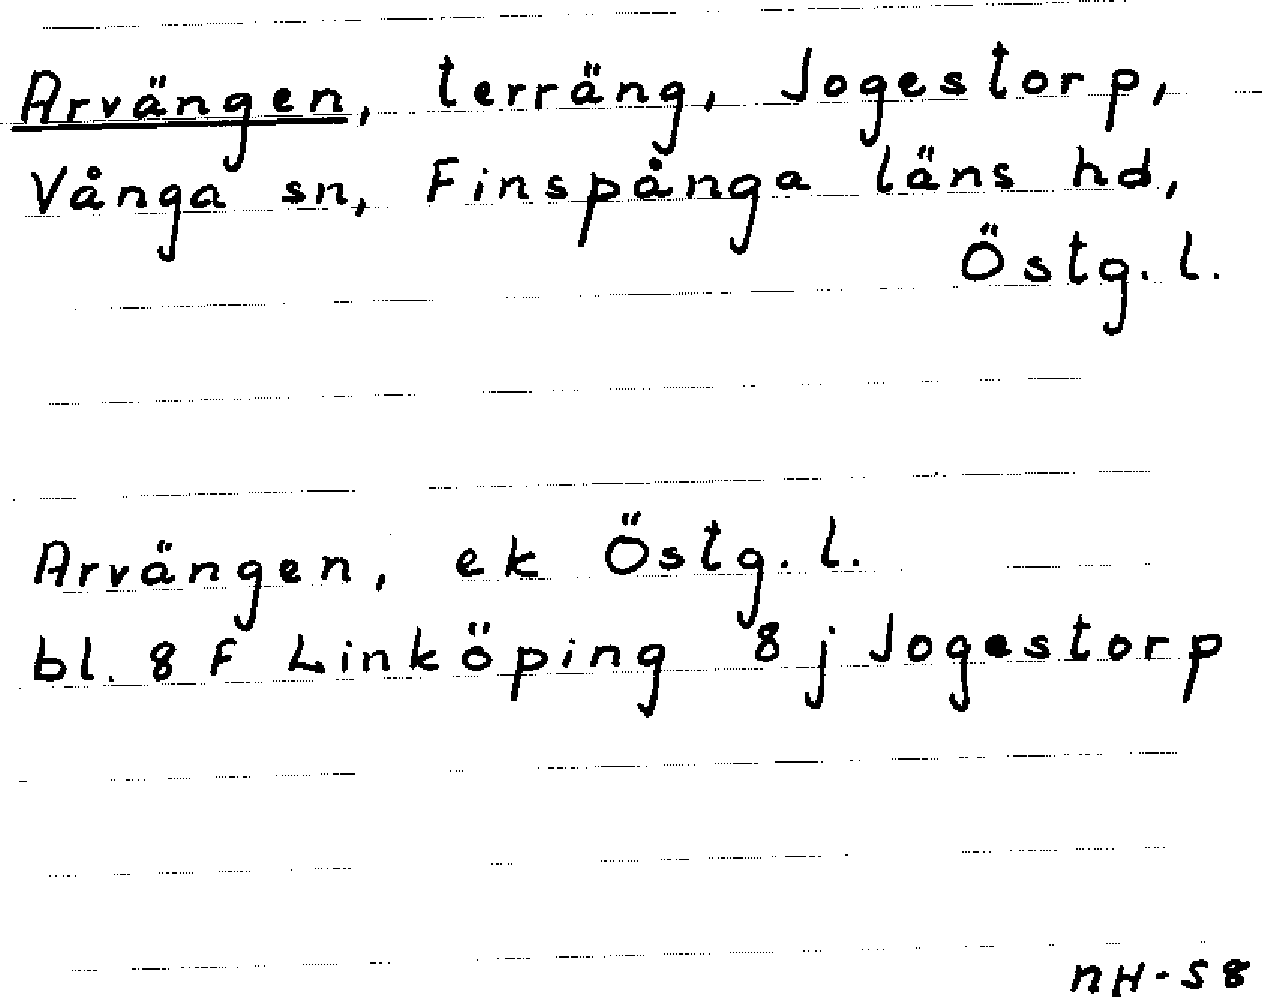 Arvängen, terräng, Jogestorp,
Vånga sn, Finspånga läns hd,
Östg. l.
Arvängen, ek Östg. l.
bl. 8 F Linköping 8 j Jogestorp
nH-58